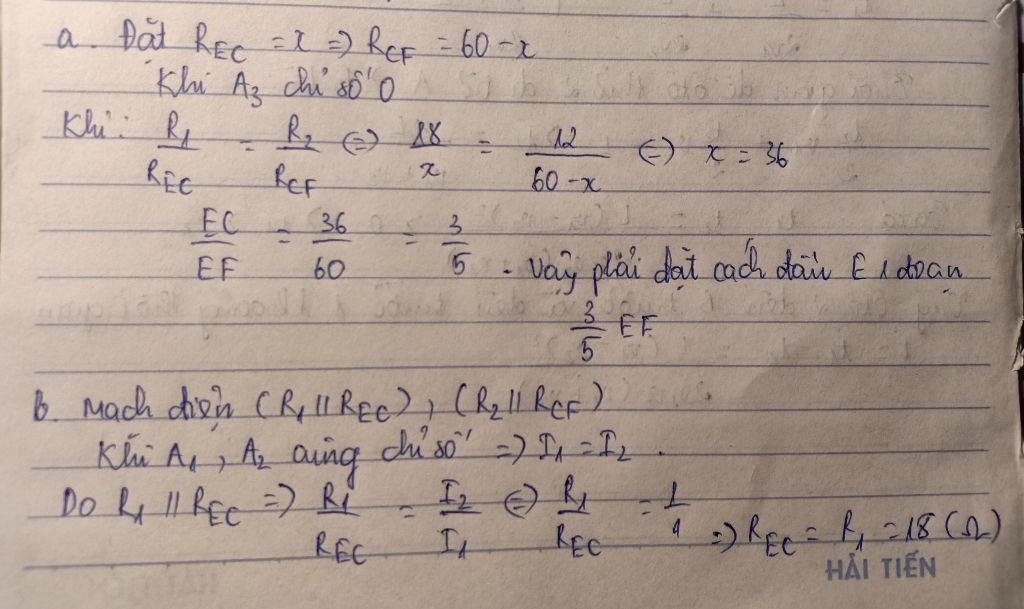 a. Đặt R_EC = x => R_CF = 60 - x
Khi A₃ chỉ số 0
Khi: R₁/R_EC = R₂/R_CF <=> 18/x = 12/(60-x) <=> x = 36
EC/EF = 36/60 = 3/5. Vậy phải đặt cách đầu E 1 đoạn
3/5 EF
b. Mạch điện (R₁ // R_EC), (R₂ // R_CF)
Khi A₁, A₂ cùng chỉ số => I₁ = I₂.
Do R₁ // R_EC => R₁/R_EC = I₂/I₁ <=> R₁/R_EC = 1/1 => R_EC = R₁ = 18 (Ω)
HẢI TIẾN